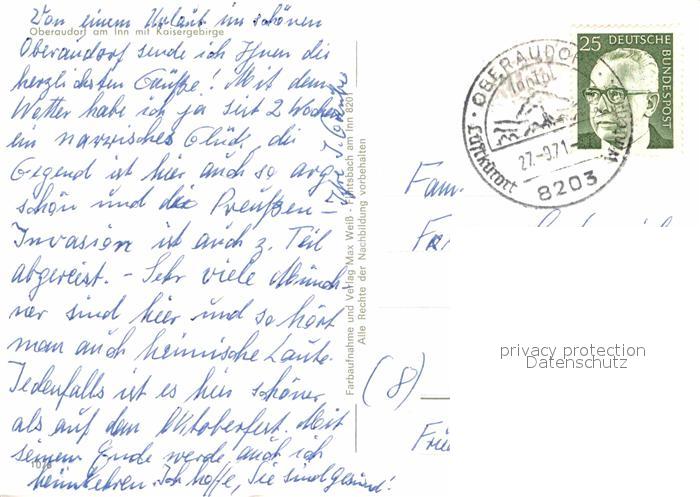 Von einem Urlaub im schönen
Oberaudorf am Inn mit Kaisergebirge
Oberaudorf sende ich Ihnen die
herzlichsten Grüße! Mit dem
Wetter habe ich ja seit 2 Wochen
ein narrisches Glück, die
Gegend ist hier auch so arg
schön und die Preußen-
Invasion ist auch z. Teil
abgereist. - Sehr viele Münch
ner sind hier und so hört
man auch heimische Laute.
Jedenfalls ist es hier schöner
als auf dem Oktoberfest. Mit
seinem Ende werde auch ich
heimkehren. Ich hoffe, Sie sind gesund!
Ihre
Farbaufnahme und Verlag Max Weiß · Fintsbach am Inn 8201
Alle Rechte der Nachbildung vorbehalten
25 DEUTSCHE
BUNDESPOST
OBERAUDORF
Luftkurort
27.-9.71
8203
Fam.
(8)
privacy protection
Datenschutz